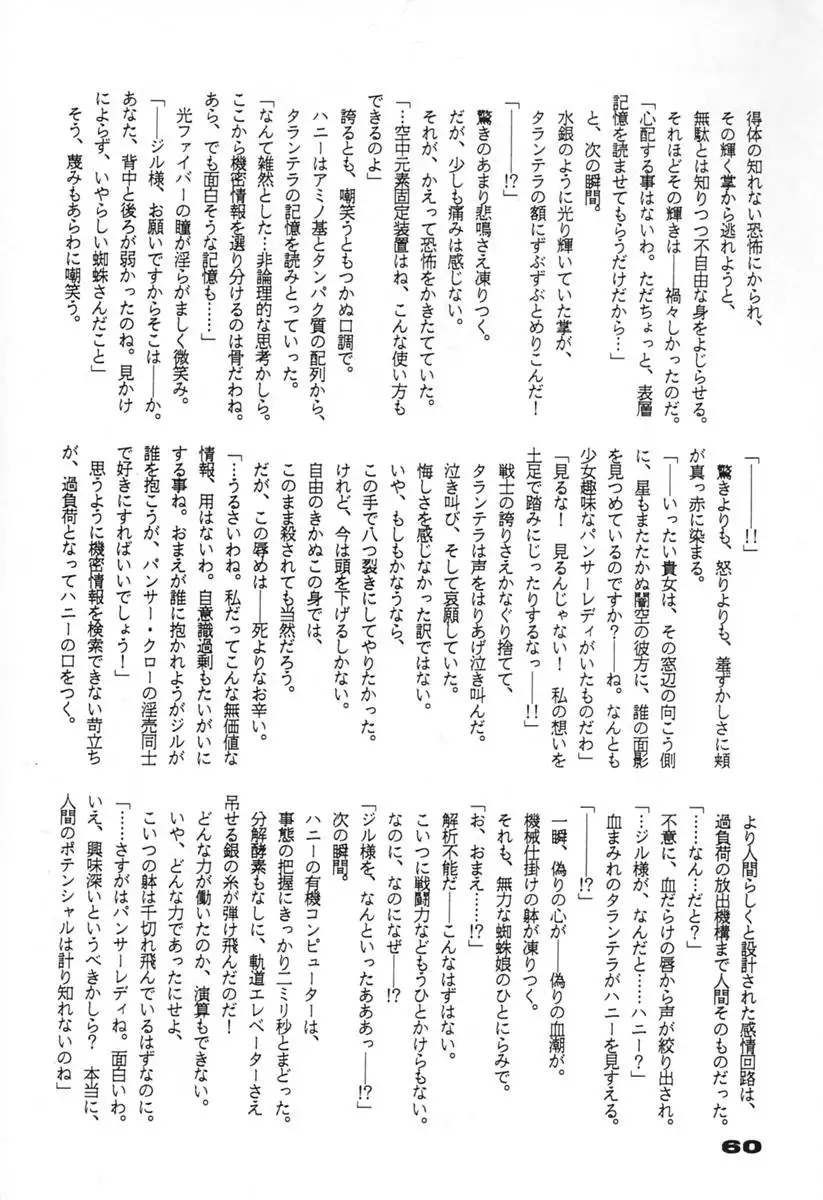 得体の知れない恐怖にかられ、
その輝く掌から逃れようと、
無駄とは知りつつ不自由な身をよじらせる。
それほどその輝きは――禍々しかったのだ。
「心配する事はないわ。ただちょっと、表層
記憶を読ませてもらうだけだから…」
と、次の瞬間。
水銀のように光り輝いていた掌が、
タランテラの額にずぶずぶとめりこんだ！
「――――!?」
驚きのあまり悲鳴さえ凍りつく。
だが、少しも痛みは感じない。
それが、かえって恐怖をかきたてていた。
「…空中元素固定装置はね、こんな使い方も
できるのよ」
誇るとも、嘲笑うともつかぬ口調で。
ハニーはアミノ基とタンパク質の配列から、
タランテラの記憶を読みとっていった。
「なんて雑然とした…非論理的な思考かしら。
ここから機密情報を選り分けるのは骨だわね。
あら、でも面白そうな記憶も……」
光ファイバーの瞳が淫らがましく微笑み。
「――ジル様、お願いですからそこは――か。
あなた、背中と後ろが弱かったのね。見かけ
によらず、いやらしい蜘蛛さんだこと」
そう、蔑みもあらわに嘲笑う。
「――――!!」
驚きよりも、怒りよりも、羞ずかしさに頬
が真っ赤に染まる。
「――いったい貴女は、その窓辺の向こう側
に、星もまたたかぬ闇空の彼方に、誰の面影
を見つめているのですか？――ね。なんとも
少女趣味なパンサーレディがいたものだわ」
「見るな！　見るんじゃない！　私の想いを
土足で踏みにじったりするなっ――!!」
戦士の誇りさえかなぐり捨てて、
タランテラは声をはりあげ泣き叫んだ。
泣き叫び、そして哀願していた。
悔しさを感じなかった訳ではない。
いや、もしもかなうなら、
この手で八つ裂きにしてやりたかった。
けれど、今は頭を下げるしかない。
自由のきかぬこの身では、
このまま殺されても当然だろう。
だが、この辱めは――死よりなお辛い。
「…うるさいわね。私だってこんな無価値な
情報、用はないわ。自意識過剰もたいがいに
する事ね。おまえが誰に抱かれようがジルが
誰を抱こうが、パンサー・クローの淫売同士
で好きにすればいいでしょう！」
思うように機密情報を検索できない苛立ち
が、過負荷となってハニーの口をつく。
より人間らしくと設計された感情回路は、
過負荷の放出機構まで人間そのものだった。
「……なん…だと？」
不意に、血だらけの唇から声が絞り出され。
「…ジル様が、なんだと……ハニー？」
血まみれのタランテラがハニーを見すえる。
「――――!?」
一瞬、偽りの心が――偽りの血潮が。
機械仕掛けの躰が凍りつく。
それも、無力な蜘蛛娘のひとにらみで。
「お、おまえ……!?」
解析不能だ――こんなはずはない。
こいつに戦闘力などもうひとかけらもない。
なのに、なのになぜ――!?
「ジル様を、なんといったあああっ――!?」
次の瞬間。
ハニーの有機コンピューターは、
事態の把握にきっかり二ミリ秒とまどった。
分解酵素もなしに、軌道エレベーターさえ
吊せる銀の糸が弾け飛んだのだ！
どんな力が働いたのか、演算もできない。
いや、どんな力であったにせよ、
こいつの躰は千切れ飛んでいるはずなのに。
「……さすがはパンサーレディね。面白いわ。
いえ、興味深いというべきかしら？　本当に、
人間のポテンシャルは計り知れないのね」
60